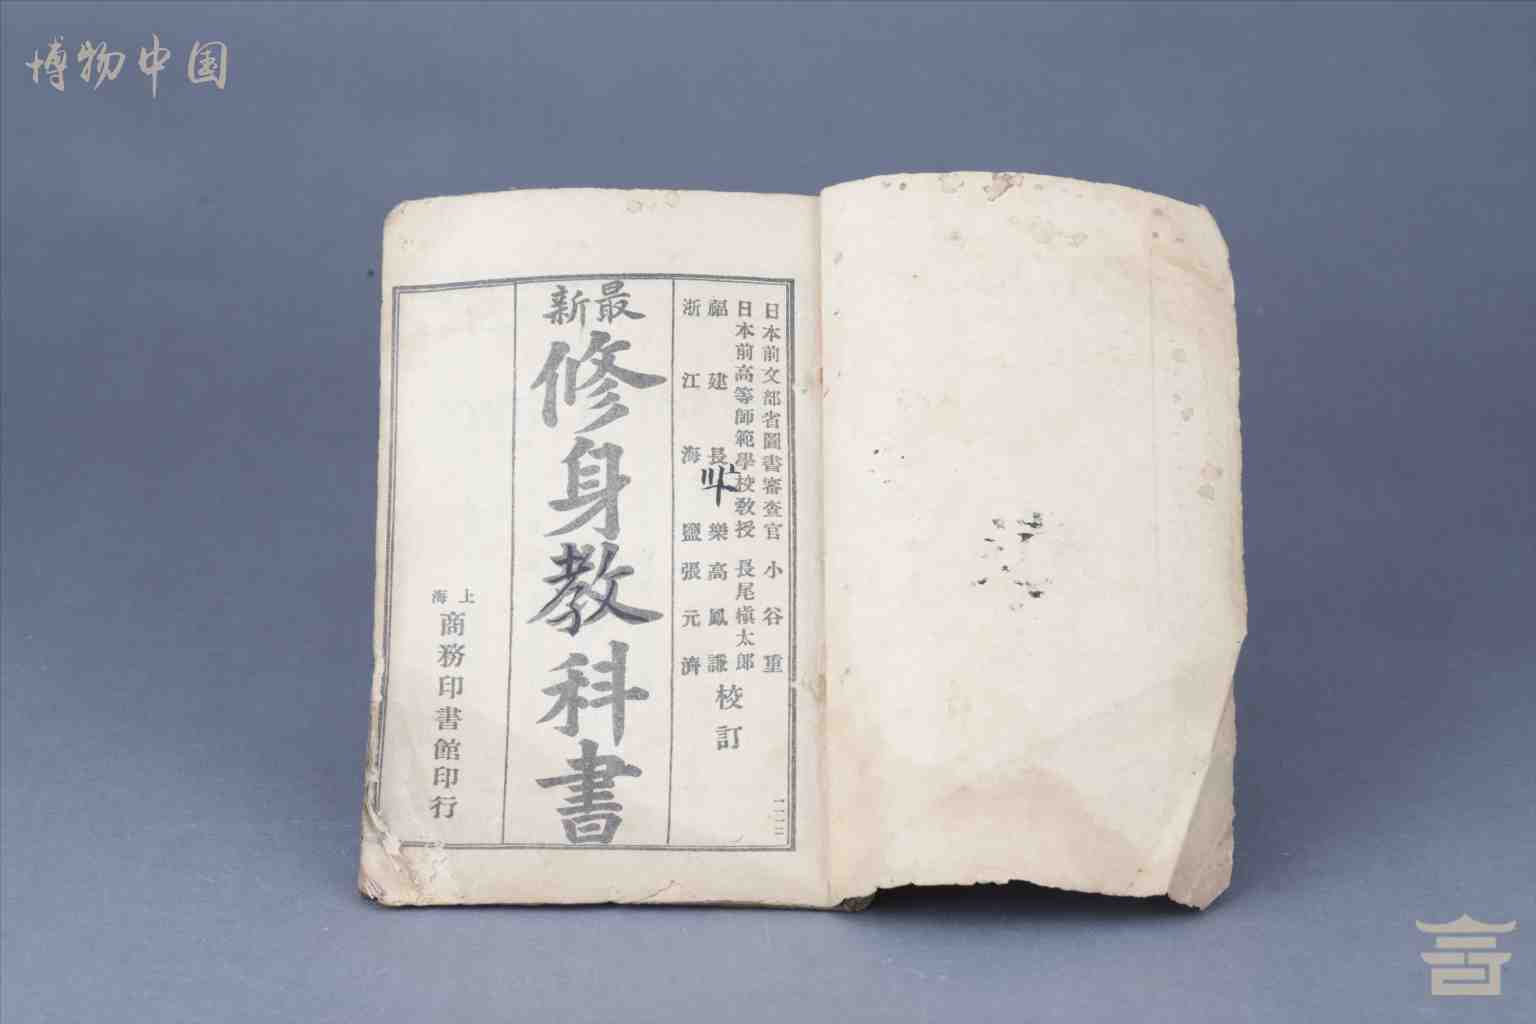 博物中国
日本前文部省圖書審查官 小谷重
日本前高等師範學校教授 長尾槇太郎
福建長樂高鳳謙
浙江海鹽張元濟
校訂
最新
修身教科書
上海
商務印書館印行